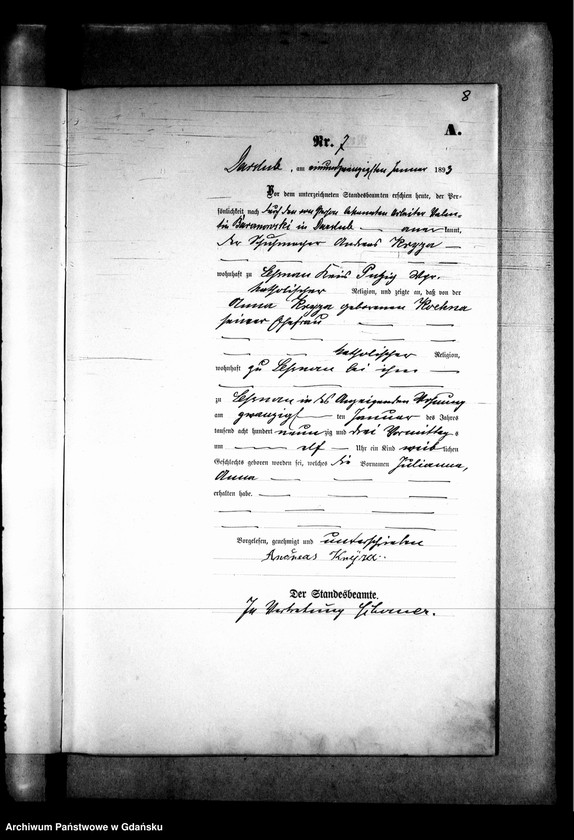 8
A.
Nr. 7
Darslub, am einundzwanzigsten Januar 1893
Vor dem unterzeichneten Standesbeamten erschien heute, der Per-
sönlichkeit nach durch den von Person bekannten Arbeiter Valen-
tin Baranowski in Darslub aner kannt,
der Schuhmacher Andreas Kryza
wohnhaft zu Lessnau Kreis Putzig Wpr.
katholischer Religion, und zeigte an, daß von der
Anna Kryza geborenen Kochna
seiner Ehefrau
katholischer Religion,
wohnhaft zu Lessnau bei ihm
zu Lessnau in des Anzeigenden Wohnung
am zwanzigsten Januar des Jahres
tausend acht hundert neunzig und drei Vormittags
um elf Uhr ein Kind weiblichen
Geschlechts geboren worden sei, welches die Vornamen Julianna,
Anna
erhalten habe.
Vorgelesen, genehmigt und unterschrieben
Andreas
Der Standesbeamte.
In Vertretung
Archiwum Państwowe w Gdańsku